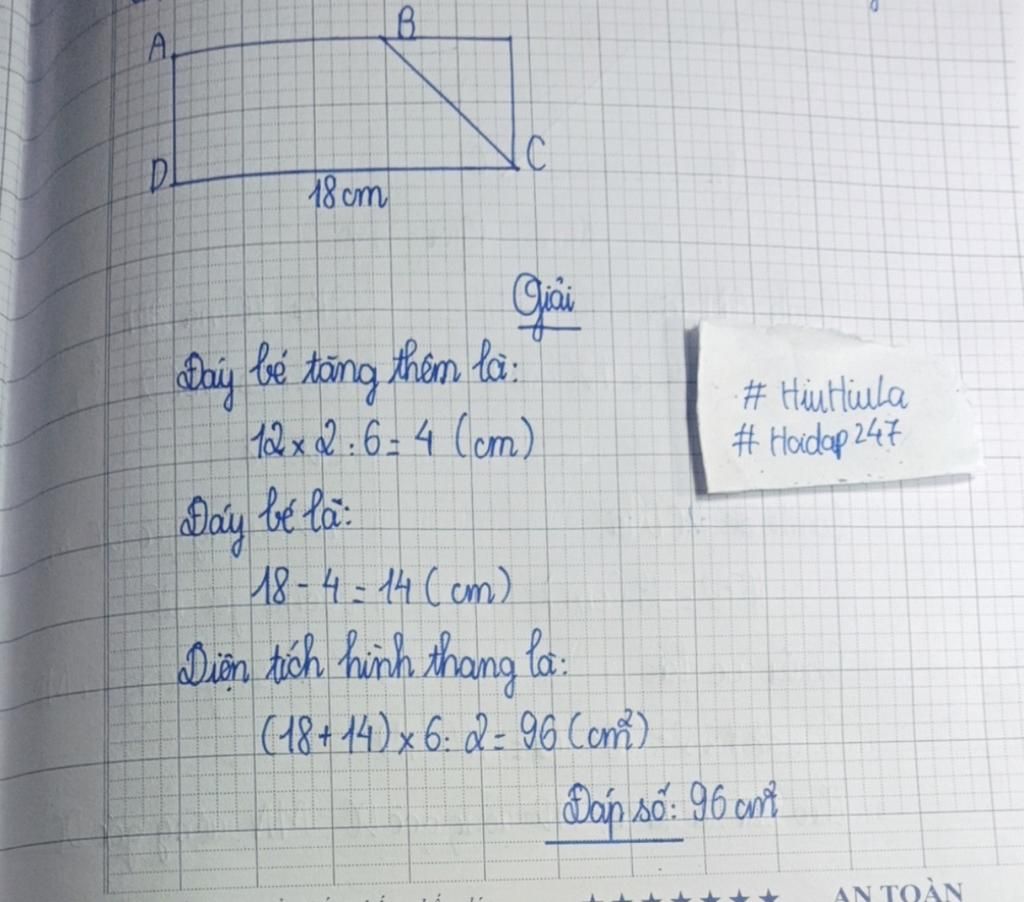 A
B
D
C
18cm
Giải
Đáy bé tăng thêm là:
12 x 2 : 6 = 4 (cm)
Đáy bé là:
18 - 4 = 14 (cm)
Diện tích hình thang là:
(18 + 14) x 6 : 2 = 96 (cm²)
Đáp số: 96 cm²
# HiuHiuLa
# Hoidap247
AN TOÀN